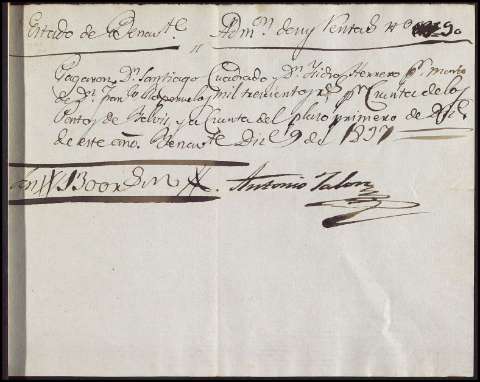 Estado de Benav.te " Adm.on de sus Rentas
Pagaron, D.n Santiago Cuadrado y D.n Isidro Herrero p.r mano
de D.n Fran.co mil trescientos r.s p.r Cuenta de los
Pastos de Belvis, y a Cuenta del plazo primero de
de este año. Benav.te Dic.e 9 de
Son # 1300 r.s Antonio Talon